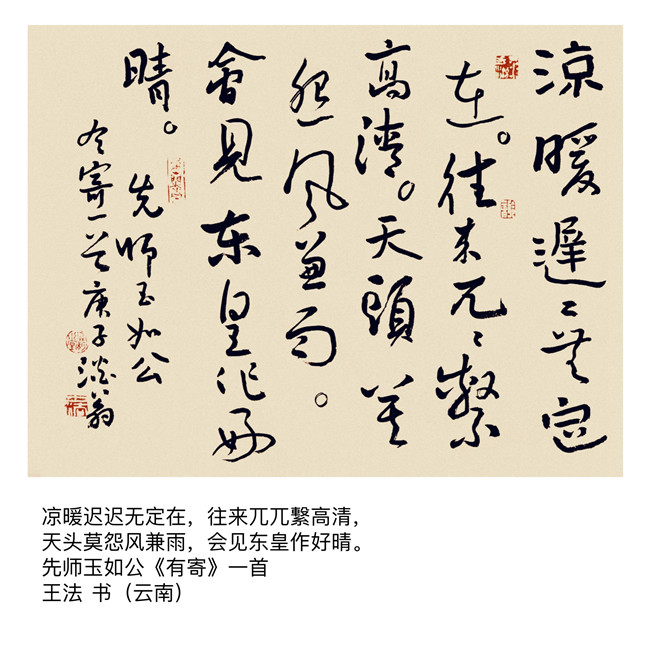 涼暖遲〻無定
在。往來兀〻繫
高清。天頭莫
怨風兼雨。
會見東皇作好
晴。先師玉如公
有寄一首庚子翁
凉暖迟迟无定在，往来兀兀繫高清，
天头莫怨风兼雨，会见东皇作好晴。
先师玉如公《有寄》一首
王法 书（云南）